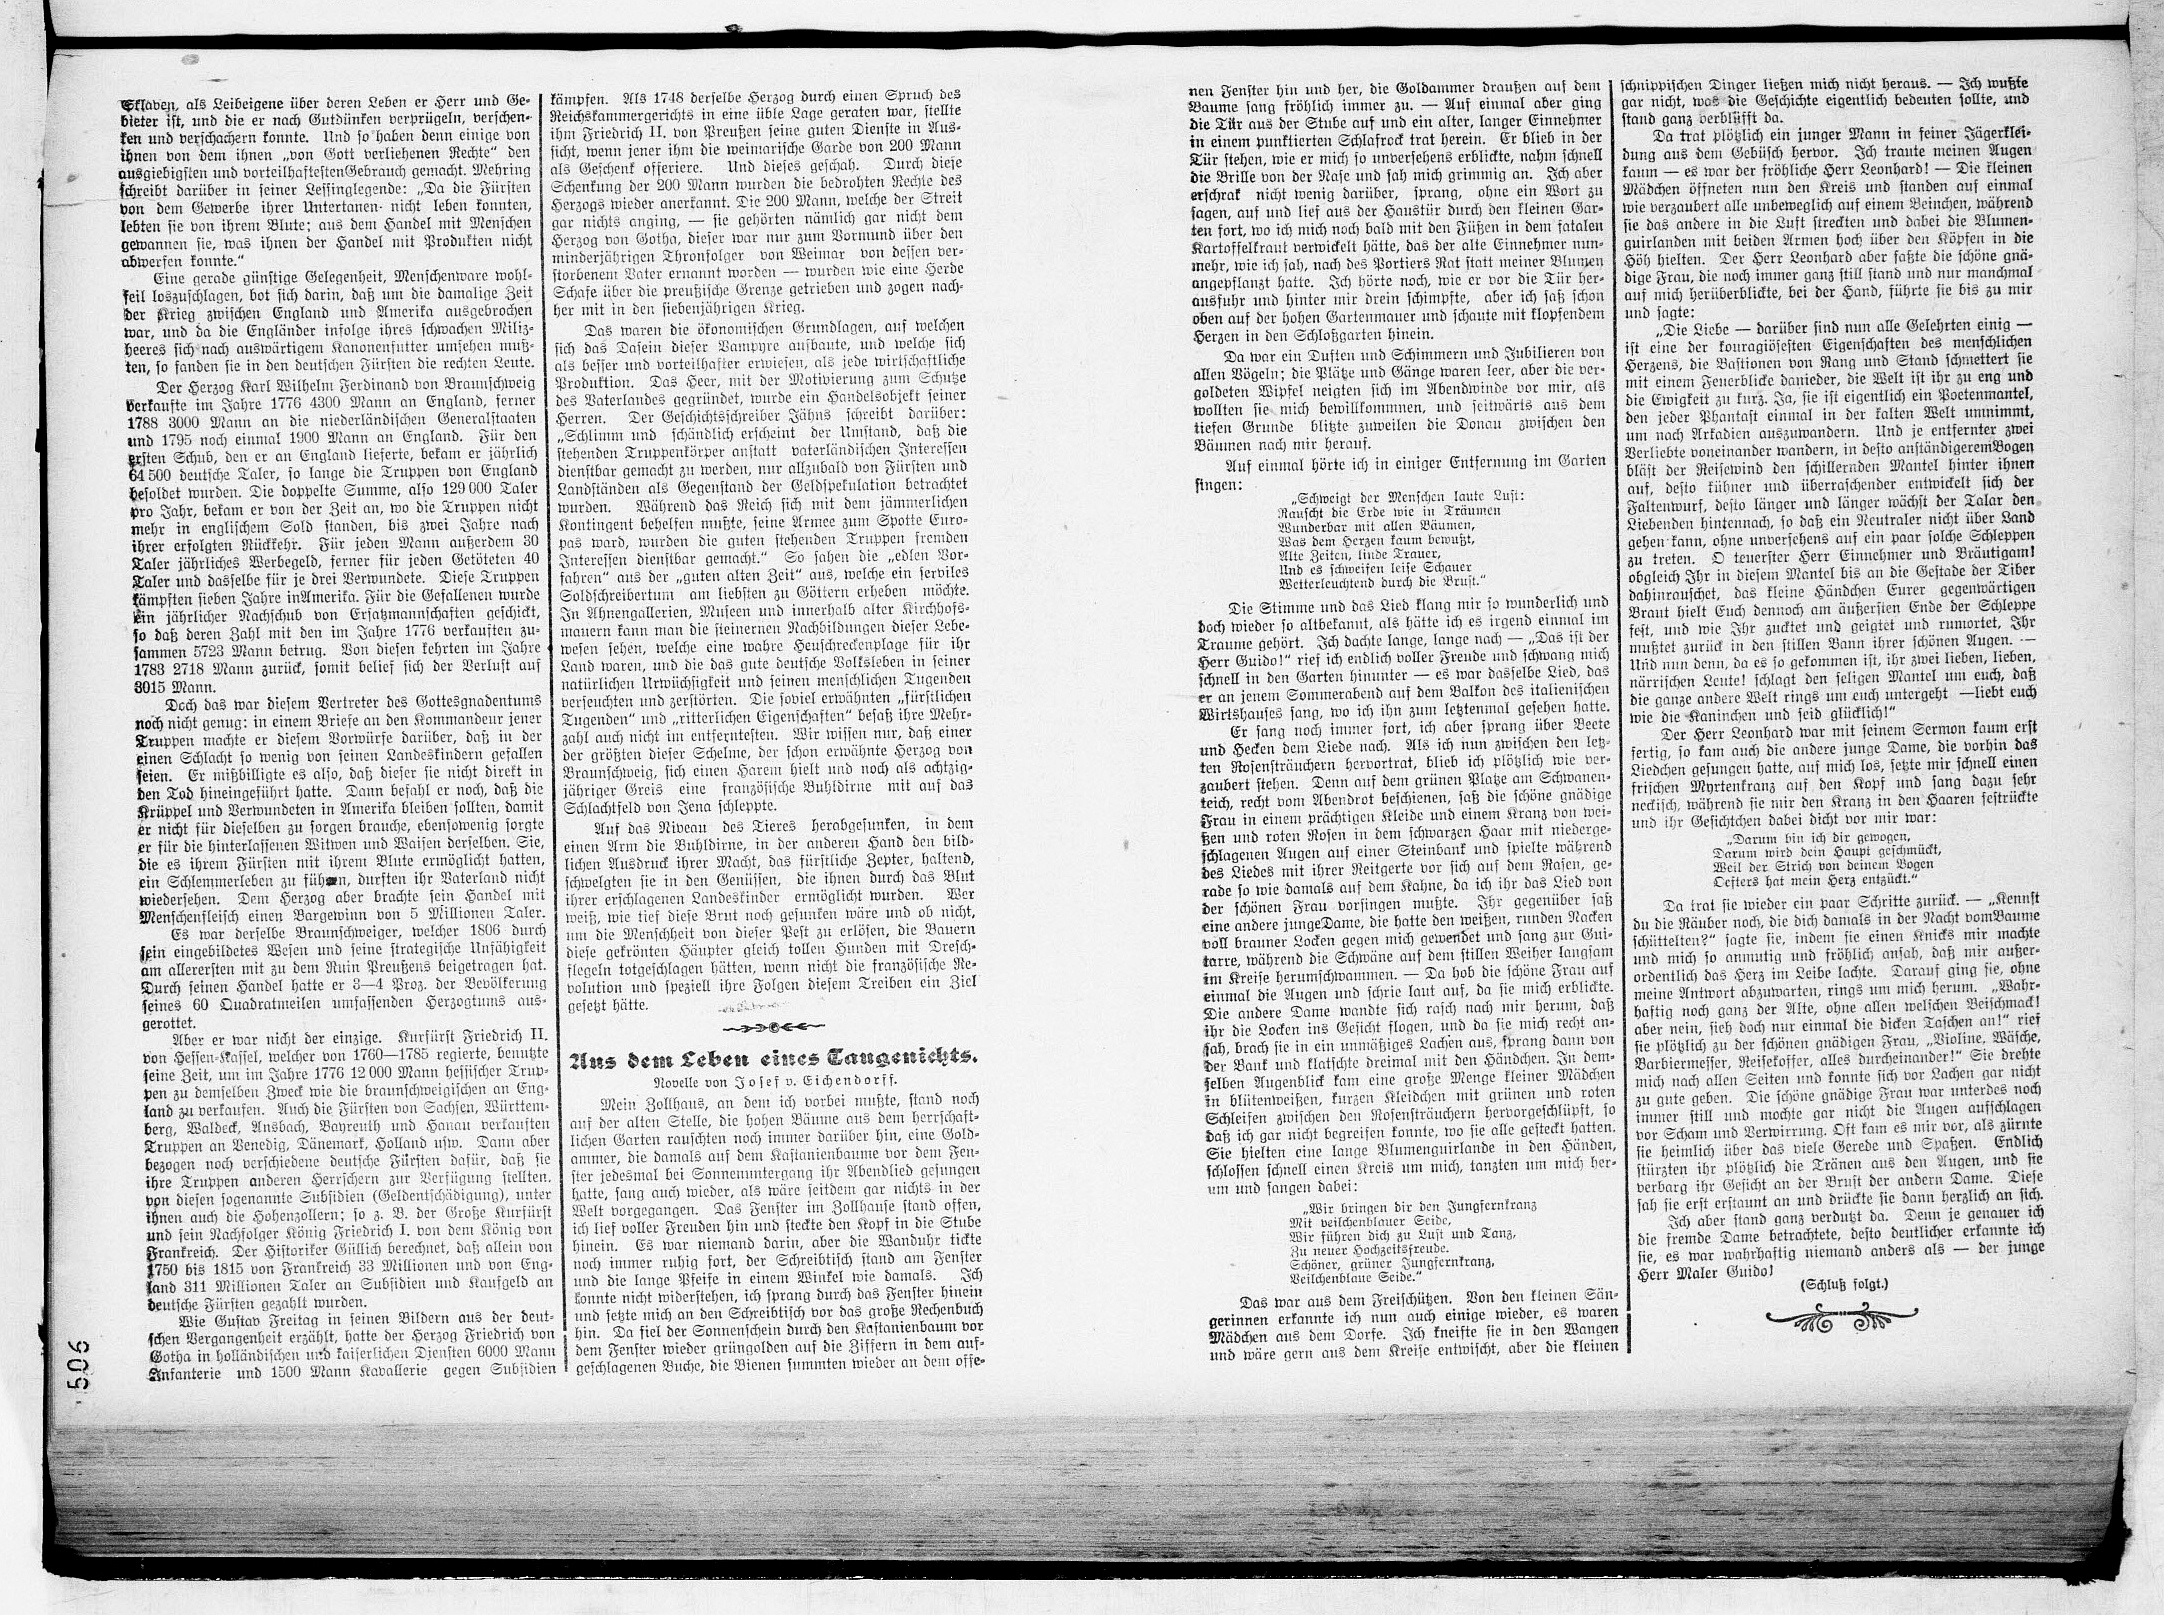 Sklaven, als Leibeigene über deren Leben er Herr und Ge-
bieter ist, und die er nach Gutdünken verprügeln, verschen-
ken und verschachern konnte. Und so haben denn einige von
ihnen von dem ihnen „von Gott verliehenen Rechte“ den
ausgiebigsten und vorteilhaftestenGebrauch gemacht. Mehring
schreibt darüber in seiner Lessinglegende: „Da die Fürsten
von dem Gewerbe ihrer Untertanen nicht leben konnten,
lebten sie von ihrem Blute; aus dem Handel mit Menschen
gewannen sie, was ihnen der Handel mit Produkten nicht
abwerfen konnte.“
Eine gerade günstige Gelegenheit, Menschenware wohl-
feil loszuschlagen, bot sich darin, daß um die damalige Zeit
der Krieg zwischen England und Amerika ausgebrochen
war, und da die Engländer infolge ihres schwachen Miliz-
heeres sich nach auswärtigem Kanonenfutter umsehen muß-
ten, so fanden sie in den deutschen Fürsten die rechten Leute.
Der Herzog Karl Wilhelm Ferdinand von Braunschweig
verkaufte im Jahre 1776 4300 Mann an England, ferner
1788 3000 Mann an die niederländischen Generalstaaten
und 1795 noch einmal 1900 Mann an England. Für den
ersten Schub, den er an England lieferte, bekam er jährlich
64 500 deutsche Taler, so lange die Truppen von England
besoldet wurden. Die doppelte Summe, also 129 000 Taler
pro Jahr, bekam er von der Zeit an, wo die Truppen nicht
mehr in englischem Sold standen, bis zwei Jahre nach
ihrer erfolgten Rückkehr. Für jeden Mann außerdem 30
Taler jährliches Werbegeld, ferner für jeden Getöteten 40
Taler und dasselbe für je drei Verwundete. Diese Truppen
kämpften sieben Jahre inAmerika. Für die Gefallenen wurde
ein jährlicher Nachschub von Ersatzmannschaften geschickt,
so daß deren Zahl mit den im Jahre 1776 verkauften zu-
sammen 5723 Mann betrug. Von diesen kehrten im Jahre
1783 2718 Mann zurück, somit belief sich der Verlust auf
3015 Mann.
Doch das war diesem Vertreter des Gottesgnadentums
noch nicht genug: in einem Briefe an den Kommandeur jener
Truppen machte er diesem Vorwürfe darüber, daß in der
einen Schlacht so wenig von seinen Landeskindern gefallen
seien. Er mißbilligte es also, daß dieser sie nicht direkt in
den Tod hineingeführt hatte. Dann befahl er noch, daß die
Krüppel und Verwundeten in Amerika bleiben sollten, damit
er nicht für dieselben zu sorgen brauche, ebensowenig sorgte
er für die hinterlassenen Witwen und Waisen derselben. Sie,
die es ihrem Fürsten mit ihrem Blute ermöglicht hatten,
ein Schlemmerleben zu führen, durften ihr Vaterland nicht
wiedersehen. Dem Herzog aber brachte sein Handel mit
Menschenfleisch einen Bargewinn von 5 Millionen Taler.
Es war derselbe Braunschweiger, welcher 1806 durch
sein eingebildetes Wesen und seine strategische Unfähigkeit
am allerersten mit zu dem Ruin Preußens beigetragen hat.
Durch seinen Handel hatte er 3—4 Proz. der Bevölkerung
seines 60 Quadratmeilen umfassenden Herzogtums aus-
gerottet.
Aber er war nicht der einzige. Kurfürst Friedrich II.
von Hessen-Kassel, welcher von 1760—1785 regierte, benutzte
seine Zeit, um im Jahre 1776 12 000 Mann hessischer Trup-
pen zu demselben Zweck wie die braunschweigischen an Eng-
land zu verkaufen. Auch die Fürsten von Sachsen, Württem-
berg, Waldeck, Ansbach, Bayreuth und Hanau verkauften
Truppen an Venedig, Dänemark, Holland usw. Dann aber
bezogen noch verschiedene deutsche Fürsten dafür, daß sie
ihre Truppen anderen Herrschern zur Verfügung stellten.
von diesen sogenannte Subsidien (Geldentschädigung), unter
ihnen auch die Hohenzollern; so z. B. der Große Kurfürst
und sein Nachfolger König Friedrich I. von dem König von
Frankreich. Der Historiker Güllich berechnet, daß allein von
1750 bis 1815 von Frankreich 33 Millionen und von Eng-
land 311 Millionen Taler an Subsidien und Kaufgeld an
deutsche Fürsten gezahlt wurden.
Wie Gustav Freitag in seinen Bildern aus der deut-
schen Vergangenheit erzählt, hatte der Herzog Friedrich von
Gotha in holländischen und kaiserlichen Diensten 6000 Mann
Infanterie und 1500 Mann Kavallerie gegen Subsidien
kämpfen. Als 1748 derselbe Herzog durch einen Spruch des
Reichskammergerichts in eine üble Lage geraten war, stellte
ihm Friedrich II. von Preußen seine guten Dienste in Aus-
sicht, wenn jener ihm die weimarische Garde von 200 Mann
als Geschenk offeriere. Und dieses geschah. Durch diese
Schenkung der 200 Mann wurden die bedrohten Rechte des
Herzogs wieder anerkannt. Die 200 Mann, welche der Streit
gar nichts anging, — sie gehörten nämlich gar nicht dem
Herzog von Gotha, dieser war nur zum Vormund über den
minderjährigen Thronfolger von Weimar von dessen ver-
storbenem Vater ernannt worden — wurden wie eine Herde
Schafe über die preußische Grenze getrieben und zogen nach-
her mit in den siebenjährigen Krieg.
Das waren die ökonomischen Grundlagen, auf welchen
sich das Dasein dieser Vampyre aufbaute, und welche sich
als besser und vorteilhafter erwiesen, als jede wirtschaftliche
Produktion. Das Heer, mit der Motivierung zum Schutze
des Vaterlandes gegründet, wurde ein Handelsobjekt seiner
Herren. Der Geschichtsschreiber Jähns schreibt darüber:
„Schlimm und schändlich erscheint der Umstand, daß die
stehenden Truppenkörper anstatt vaterländischen Interessen
dienstbar gemacht zu werden, nur allzubald von Fürsten und
Landständen als Gegenstand der Geldspekulation betrachtet
wurden. Während das Reich sich mit dem jämmerlichen
Kontingent behelfen mußte, seine Armee zum Spotte Euro-
pas ward, wurden die guten stehenden Truppen fremden
Interessen dienstbar gemacht.“ So sahen die „edlen Vor-
fahren“ aus der „guten alten Zeit“ aus, welche ein serviles
Soldschreibertum am liebsten zu Göttern erheben möchte.
In Ahnengallerien, Museen und innerhalb alter Kirchhofs-
mauern kann man die steinernen Nachbildungen dieser Lebe-
wesen sehen, welche eine wahre Heuschreckenplage für ihr
Land waren, und die das gute deutsche Volksleben in seiner
natürlichen Urwüchsigkeit und seinen menschlichen Tugenden
verseuchten und zerstörten. Die soviel erwähnten „fürstlichen
Tugenden“ und „ritterlichen Eigenschaften“ besaß ihre Mehr-
zahl auch nicht im entferntesten. Wir wissen nur, daß einer
der größten dieser Schelme, der schon erwähnte Herzog von
Braunschweig, sich einen Harem hielt und noch als achtzig-
jähriger Greis eine französische Buhldirne mit auf das
Schlachtfeld von Jena schleppte.
Auf das Niveau des Tieres herabgesunken, in dem
einen Arm die Buhldirne, in der anderen Hand den bild-
lichen Ausdruck ihrer Macht, das fürstliche Zepter, haltend,
schwelgten sie in den Genüssen, die ihnen durch das Blut
ihrer erschlagenen Landeskinder ermöglicht wurden. Wer
weiß, wie tief diese Brut noch gesunken wäre und ob nicht,
um die Menschheit von dieser Pest zu erlösen, die Bauern
diese gekrönten Häupter gleich tollen Hunden mit Dresch-
flegeln totgeschlagen hätten, wenn nicht die französische Re-
volution und speziell ihre Folgen diesem Treiben ein Ziel
gesetzt hätte.
Aus dem Leben eines Taugenichts.
Novelle von Josef v. Eichendorff.
Mein Zollhaus, an dem ich vorbei mußte, stand noch
auf der alten Stelle, die hohen Bäume aus dem herrschaft-
lichen Garten rauschten noch immer darüber hin, eine Gold-
ammer, die damals auf dem Kastanienbaume vor dem Fen-
ster jedesmal bei Sonnenuntergang ihr Abendlied gesungen
hatte, sang auch wieder, als wäre seitdem gar nichts in der
Welt vorgegangen. Das Fenster im Zollhause stand offen,
ich lief voller Freuden hin und steckte den Kopf in die Stube
hinein. Es war niemand darin, aber die Wanduhr tickte
noch immer ruhig fort, der Schreibtisch stand am Fenster
und die lange Pfeife in einem Winkel wie damals. Ich
konnte nicht widerstehen, ich sprang durch das Fenster hinein
und setzte mich an den Schreibtisch vor das große Rechenbuch
hin. Da fiel der Sonnenschein durch den Kastanienbaum vor
dem Fenster wieder grüngolden auf die Ziffern in dem auf-
geschlagenen Buche, die Bienen summten wieder an dem offe-
nen Fenster hin und her, die Goldammer draußen auf dem
Baume sang fröhlich immer zu. — Auf einmal aber ging
die Tür aus der Stube auf und ein alter, langer Einnehmer
in einem punktierten Schlafrock trat herein. Er blieb in der
Tür stehen, wie er mich so unversehens erblickte, nahm schnell
die Brille von der Nase und sah mich grimmig an. Ich aber
erschrak nicht wenig darüber, sprang, ohne ein Wort zu
sagen, auf und lief aus der Haustür durch den kleinen Gar-
ten fort, wo ich mich noch bald mit den Füßen in dem fatalen
Kartoffelkraut verwickelt hätte, das der alte Einnehmer nun-
mehr, wie ich sah, nach des Portiers Rat statt meiner Blumen
angepflanzt hatte. Ich hörte noch, wie er vor die Tür her-
ausfuhr und hinter mir drein schimpfte, aber ich saß schon
oben auf der hohen Gartenmauer und schaute mit klopfendem
Herzen in den Schloßgarten hinein.
Da war ein Duften und Schimmern und Jubilieren von
allen Vögeln; die Plätze und Gänge waren leer, aber die ver-
goldeten Wipfel neigten sich im Abendwinde vor mir, als
wollten sie mich bewillkommnen, und seitwärts aus dem
tiefen Grunde blitzte zuweilen die Donau zwischen den
Bäumen nach mir herauf.
Auf einmal hörte ich in einiger Entfernung im Garten
singen:
„Schweigt der Menschen laute Lust:
Rauscht die Erde wie in Träumen
Wunderbar mit allen Bäumen,
Was dem Herzen kaum bewußt,
Alte Zeiten, linde Trauer,
Und es schweifen leise Schauer
Wetterleuchtend durch die Brust.“
Die Stimme und das Lied klang mir so wunderlich und
doch wieder so altbekannt, als hätte ich es irgend einmal im
Traume gehört. Ich dachte lange, lange nach — „Das ist der
Herr Guido!“ rief ich endlich voller Freude und schwang mich
schnell in den Garten hinunter — es war dasselbe Lied, das
er an jenem Sommerabend auf dem Balkon des italienischen
Wirtshauses sang, wo ich ihn zum letztenmal gesehen hatte.
Er sang noch immer fort, ich aber sprang über Beete
und Hecken dem Liede nach. Als ich nun zwischen den letz-
ten Rosensträuchern hervortrat, blieb ich plötzlich wie ver-
zaubert stehen. Denn auf dem grünen Platze am Schwanen-
teich, recht vom Abendrot beschienen, saß die schöne gnädige
Frau in einem prächtigen Kleide und einem Kranz von wei-
ßen und roten Rosen in dem schwarzen Haar mit niederge-
schlagenen Augen auf einer Steinbank und spielte während
des Liedes mit ihrer Reitgerte vor sich auf dem Rasen, ge-
rade so wie damals auf dem Kahne, da ich ihr das Lied von
der schönen Frau vorsingen mußte. Ihr gegenüber saß
eine andere jungeDame, die hatte den weißen, runden Nacken
voll brauner Locken gegen mich gewendet und sang zur Gui-
tarre, während die Schwäne auf dem stillen Weiher langsam
im Kreise herumschwammen. — Da hob die schöne Frau auf
einmal die Augen und schrie laut auf, da sie mich erblickte.
Die andere Dame wandte sich rasch nach mir herum, daß
ihr die Locken ins Gesicht flogen, und da sie mich recht an-
sah, brach sie in ein unmäßiges Lachen aus, sprang dann von
der Bank und klatschte dreimal mit den Händchen. In dem-
selben Augenblick kam eine große Menge kleiner Mädchen
in blütenweißen, kurzen Kleidchen mit grünen und roten
Schleifen zwischen den Rosensträuchern hervorgeschlüpft, so
daß ich gar nicht begreifen konnte, wo sie alle gesteckt hatten.
Sie hielten eine lange Blumenguirlande in den Händen,
schlossen schnell einen Kreis um mich, tanzten um mich her-
um und sangen dabei:
„Wir bringen dir den Jungfernkranz
Mit veilchenblauer Seide,
Wir führen dich zu Lust und Tanz,
Zu neuer Hochzeitsfreude.
Schöner, grüner Jungfernkranz,
Veilchenblaue Seide.“
Das war aus dem Freischützen. Von den kleinen Sän-
gerinnen erkannte ich nun auch einige wieder, es waren
Mädchen aus dem Dorfe. Ich kneifte sie in den Wangen
und wäre gern aus dem Kreise entwischt, aber die kleinen
schnippischen Dinger ließen mich nicht heraus. — Ich wußte
gar nicht, was die Geschichte eigentlich bedeuten sollte, und
stand ganz verblüfft da.
Da trat plötzlich ein junger Mann in feiner Jägerklei-
dung aus dem Gebüsch hervor. Ich traute meinen Augen
kaum — es war der fröhliche Herr Leonhard! — Die kleinen
Mädchen öffneten nun den Kreis und standen auf einmal
wie verzaubert alle unbeweglich auf einem Beinchen, während
sie das andere in die Luft streckten und dabei die Blumen-
guirlanden mit beiden Armen hoch über den Köpfen in die
Höh hielten. Der Herr Leonhard aber faßte die schöne gnä-
dige Frau, die noch immer ganz still stand und nur manchmal
auf mich herüberblickte, bei der Hand, führte sie bis zu mir
und sagte:
„Die Liebe — darüber sind nun alle Gelehrten einig —
ist eine der kouragiösesten Eigenschaften des menschlichen
Herzens, die Bastionen von Rang und Stand schmettert sie
mit einem Feuerblicke danieder, die Welt ist ihr zu eng und
die Ewigkeit zu kurz. Ja, sie ist eigentlich ein Poetenmantel,
den jeder Phantast einmal in der kalten Welt umnimmt,
um nach Arkadien auszuwandern. Und je entfernter zwei
Verliebte voneinander wandern, in desto anständigeremBogen
bläst der Reisewind den schillernden Mantel hinter ihnen
auf, desto kühner und überraschender entwickelt sich der
Faltenwurf, desto länger und länger wächst der Talar den
Liebenden hintennach, so daß ein Neutraler nicht über Land
gehen kann, ohne unversehens auf ein paar solche Schleppen
zu treten. O teuerster Herr Einnehmer und Bräutigam!
obgleich Ihr in diesem Mantel bis an die Gestade der Tiber
dahinrauschet, das kleine Händchen Eurer gegenwärtigen
Braut hielt Euch dennoch am äußersten Ende der Schleppe
fest, und wie Ihr zucktet und geigtet und rumortet, Ihr
mußtet zurück in den stillen Bann ihrer schönen Augen. —
Und nun denn, da es so gekommen ist, ihr zwei lieben, lieben,
närrischen Leute! schlagt den seligen Mantel um euch, daß
die ganze andere Welt rings um euch untergeht —liebt euch
wie die Kaninchen und seid glücklich!“
Der Herr Leonhard war mit seinem Sermon kaum erst
fertig, so kam auch die andere junge Dame, die vorhin das
Liedchen gesungen hatte, auf mich los, setzte mir schnell einen
frischen Myrtenkranz auf den Kopf und sang dazu sehr
neckisch, während sie mir den Kranz in den Haaren festrückte
und ihr Gesichtchen dabei dicht vor mir war:
„Darum bin ich dir gewogen,
Darum wird dein Haupt geschmückt,
Weil der Strich von deinem Bogen
Oefters hat mein Herz entzückt.“
Da trat sie wieder ein paar Schritte zurück. — „Kennst
du die Räuber noch, die dich damals in der Nacht vomBaume
schüttelten?“ sagte sie, indem sie einen Knicks mir machte
und mich so anmutig und fröhlich ansah, daß mir außer-
ordentlich das Herz im Leibe lachte. Darauf ging sie, ohne
meine Antwort abzuwarten, rings um mich herum. „Wahr-
haftig noch ganz der Alte, ohne allen welschen Beischmack!
aber nein, sieh doch nur einmal die dicken Taschen an!“ rief
sie plötzlich zu der schönen gnädigen Frau, „Violine, Wäsche,
Barbiermesser, Reisekoffer, alles durcheinander!“ Sie drehte
mich nach allen Seiten und konnte sich vor Lachen gar nicht
zu gute geben. Die schöne gnädige Frau war unterdes noch
immer still und mochte gar nicht die Augen aufschlagen
vor Scham und Verwirrung. Oft kam es mir vor, als zürnte
sie heimlich über das viele Gerede und Spaßen. Endlich
stürzten ihr plötzlich die Tränen aus den Augen, und sie
verbarg ihr Gesicht an der Brust der andern Dame. Diese
sah sie erst erstaunt an und drückte sie dann herzlich an sich.
Ich aber stand ganz verdutzt da. Denn je genauer ich
die fremde Dame betrachtete, desto deutlicher erkannte ich
sie, es war wahrhaftig niemand anders als — der junge
Herr Maler Guido!
(Schluß folgt.)
506